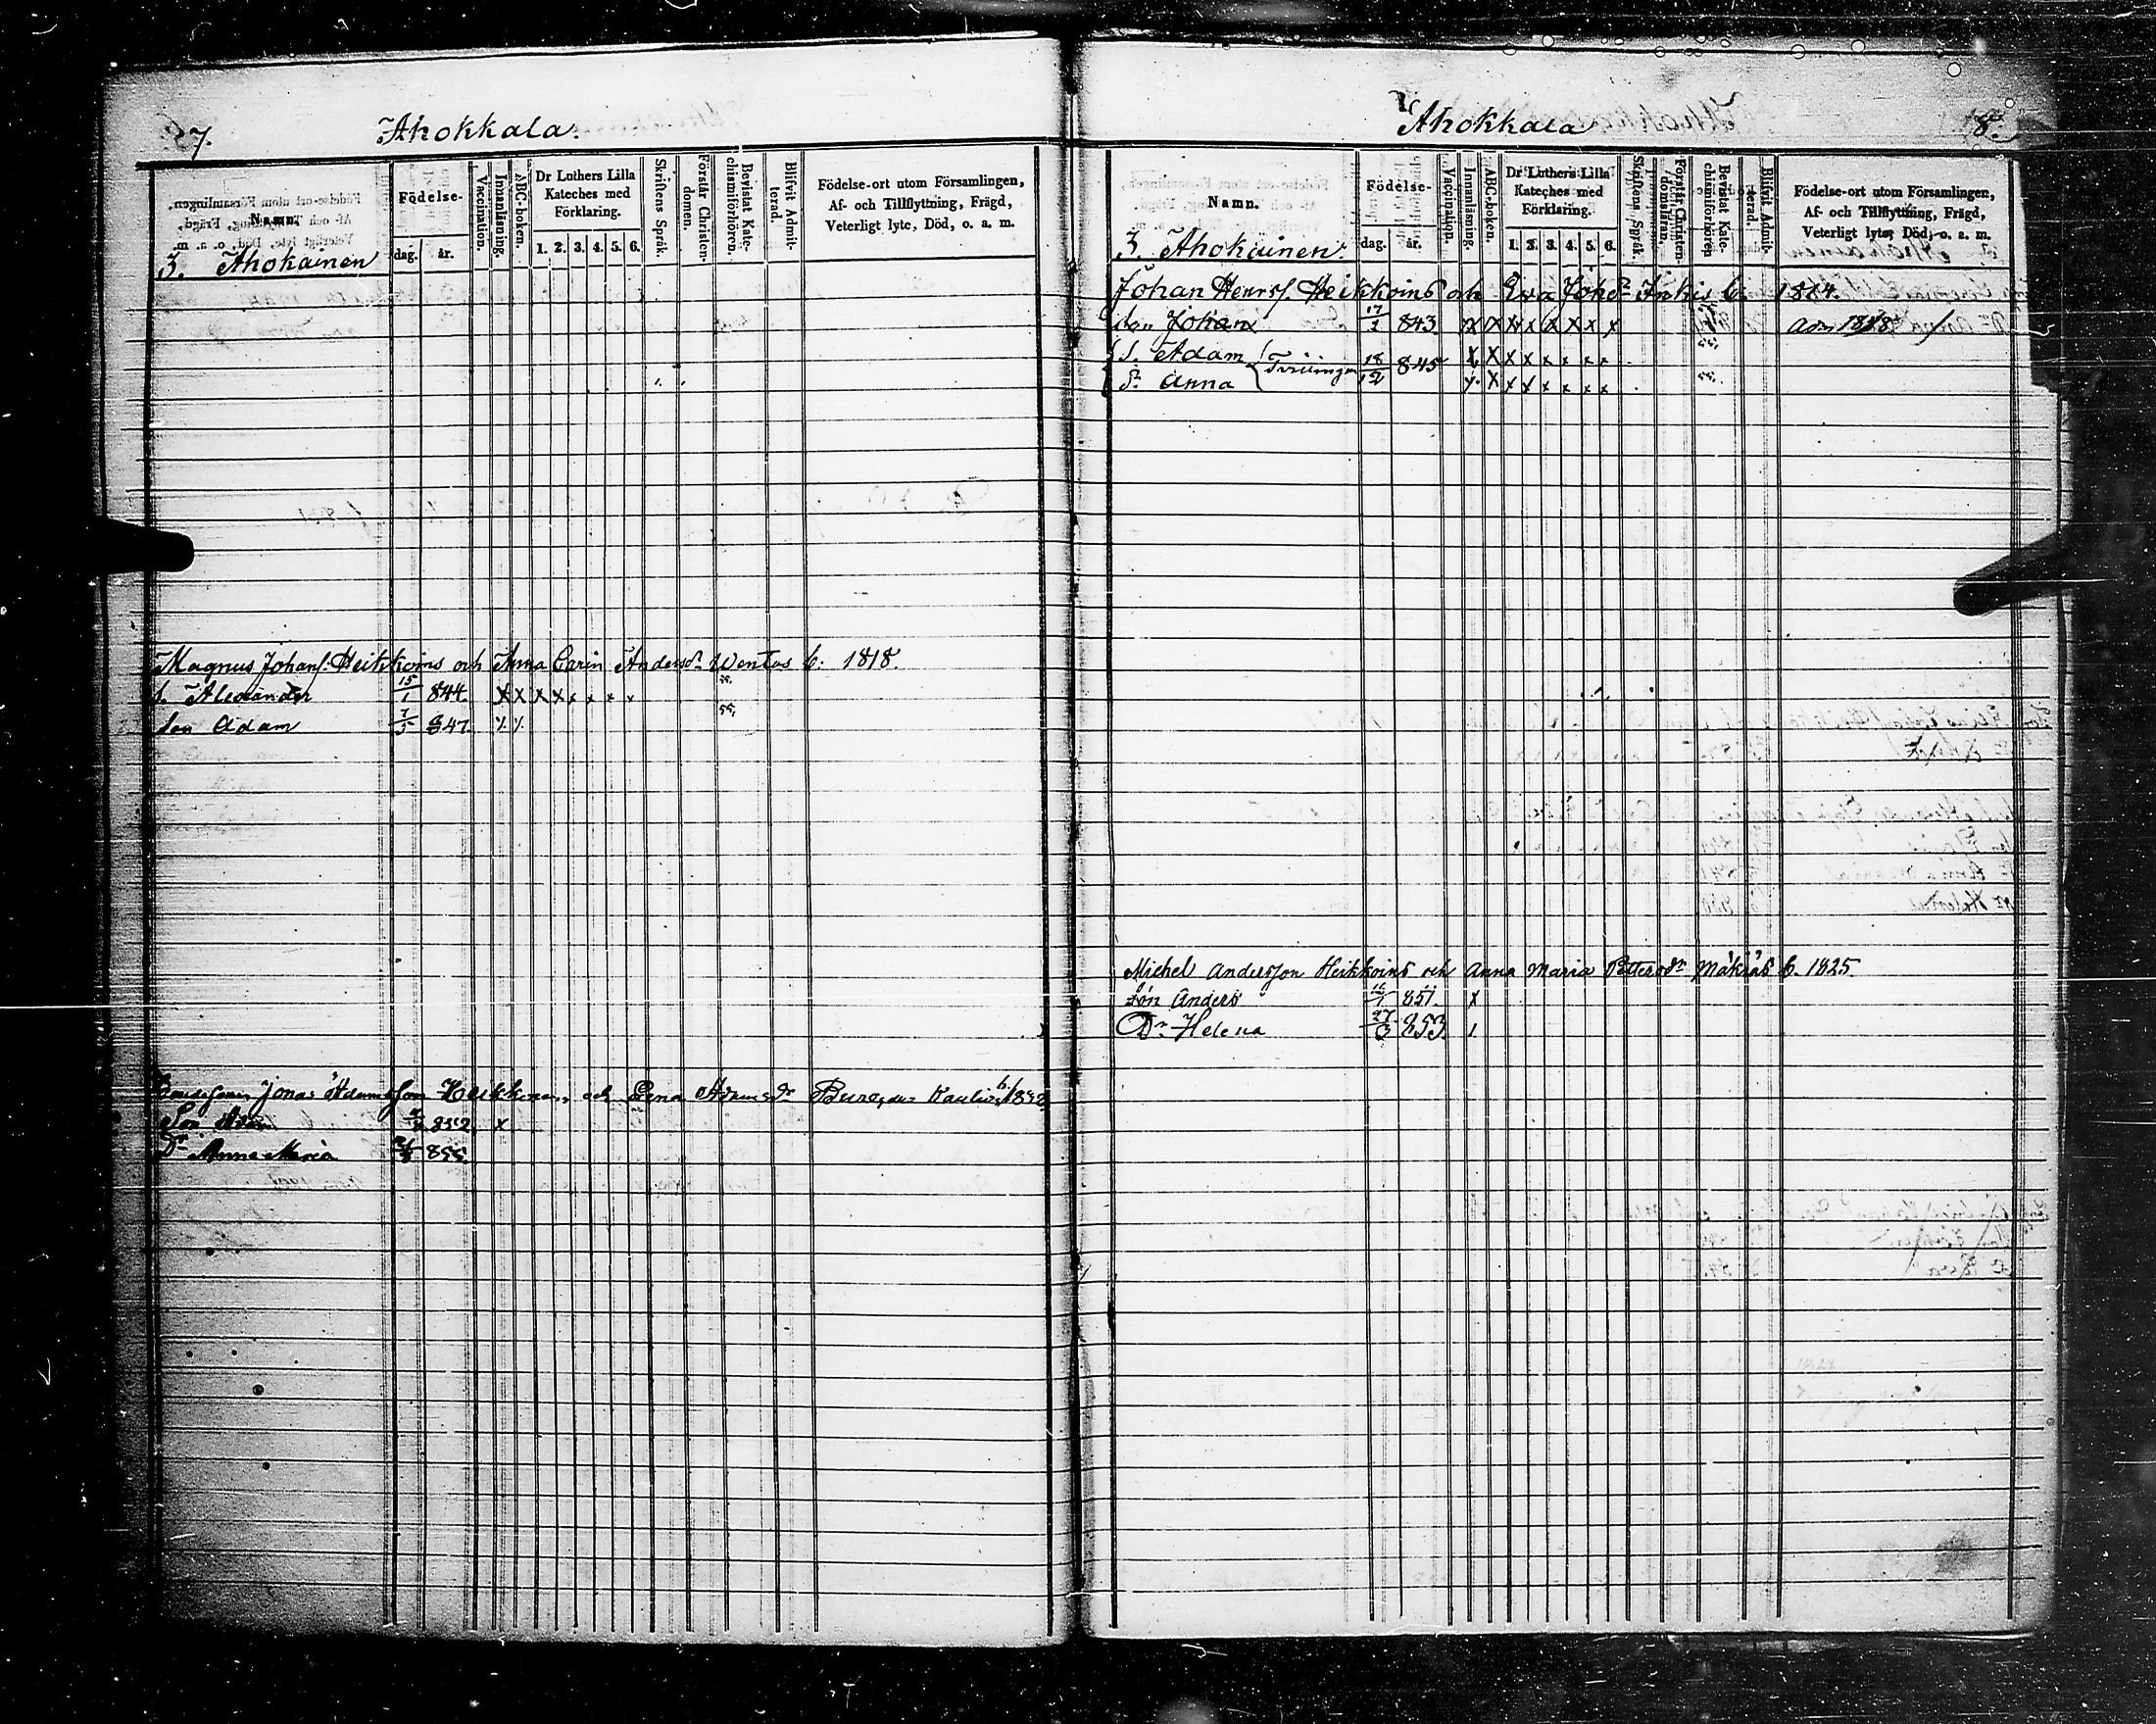 7.
Ahokkala.
Namn.
Födelse-
dag. år.
Vaccination.
Innanläsning.
ABC-boken.
Dr Luthers Lilla
Kateches med
Förklaring.
1. 2. 3. 4. 5. 6.
Skriftens Språk.
Förstår Christen-
domen.
Bevistat Kate-
chismiförhören.
Blifvit Admit-
terad.
Födelse-ort utom Församlingen,
Af- och Tillflyttning, Frägd,
Veterligt lyte, Död, o. a. m.
3. Ahokainen
Magnus Johans. Heikkoins och Anna Carin Andersdr Wentas b. 1818.
s. Alexander 15/1 844. x x x x x x x x 55.
son Adam 7/5 847. x x 55.
Jonas Adamsson Heikkinen och Lena Adamsdr b. 1832
Son Adam 852 x
Dr Anna Maria 855.
Ahokkala
8.
Namn.
Födelse-
dag. år.
Vaccination.
Innanläsning.
ABC-boken.
Dr Luthers Lilla
Kateches med
Förklaring.
1. 2. 3. 4. 5. 6.
Skriftens Språk.
Förstår Christen-
domsläran.
Bevistat Kate-
chismiförhören
Blifvit Admit-
terad.
Födelse-ort utom Församlingen,
Af- och Tillflyttning, Frägd,
Veterligt lyte, Död, o. a. m.
3. Ahokainen.
Johan Henrs. Heikkoins och Eva Johdr Inkis b. 1814.
son Johan 17/1 843 x x x x x x x x
s. Adam 18/12 845 x x x x x x x x 55.
dr Anna x x x x x x x x 55.
Michel Andersson Heikkoins och Anna Maria Pettersdr Mäkräs b. 1825.
Son Anders 16/1 851. x
Dr Helena 27/3 853. 1